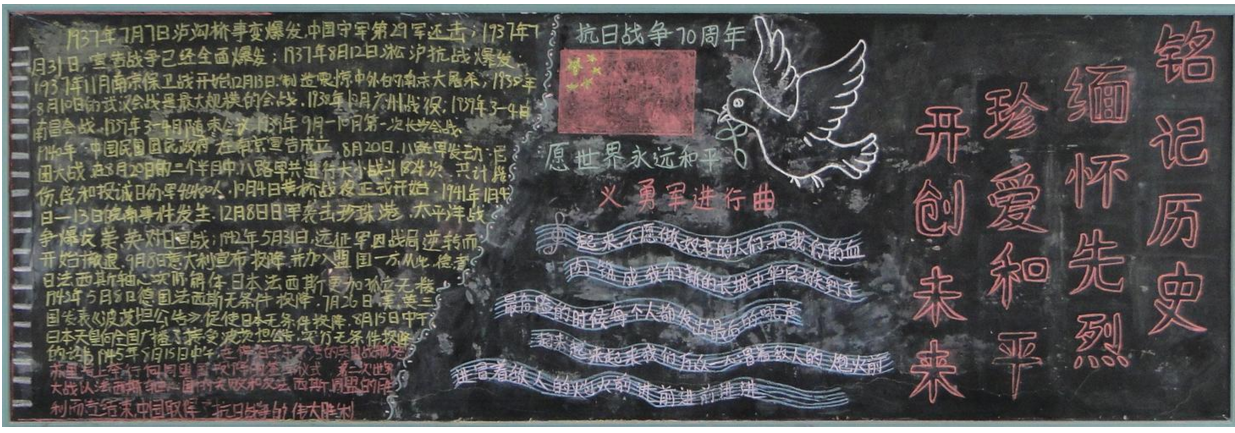 1937年7月7日泸沟桥事变爆发,中国守军第29军还击;1937年7
月31日,宣告战争已经全面爆发;1937年8月12日淞沪抗战爆发,
1937年11月南京保卫战开始12月13日制造震惊中外的南京大屠杀;1938年
8月10日的武汉会战是最大规模的会战,1938年10月广州战役;1939年3-4月
南昌会战,1939年3-4月随枣会战1939年9月-10月第一次长沙会战
1940年,中国民国国民政府在南京宣告成立,8月20日,八路军发动
团大战
伤 10月4日黄桥战役正式开始,1941年1月4
日-13日皖南事件发生,12月8日日军袭击珍珠港,太平洋战
争爆发美、英对日宣战;1942年5月31日,远征军因战局逆转而
开始撤退,9月8日意大利宣布投降,并加入盟国一方从此德意
日法西斯轴心
1945年5月8日德国法西斯无条件投降,7月26日美英三
国发表《波茨坦公告》促使日本无条件投降,8月15日中午
日本天皇向全国广播了接受波茨坦公告,实行无条件投降
的诏书1945年9月15日中午
苏里号上举行
大战以法西斯
利而宣告结束,中国取得了抗日战争的伟大胜利
抗日战争70周年
愿世界永远和平
义勇军进行曲
起来不愿做奴隶的人们把我们的血
肉筑成我们新的长城中华民族到了
最危险的时候每个人都
起来起来起来我们万众一心冒着敌人的炮火前
进冒着敌人的炮火前进前进前进进
铭记历史
缅怀先烈
珍爱和平
开创未来